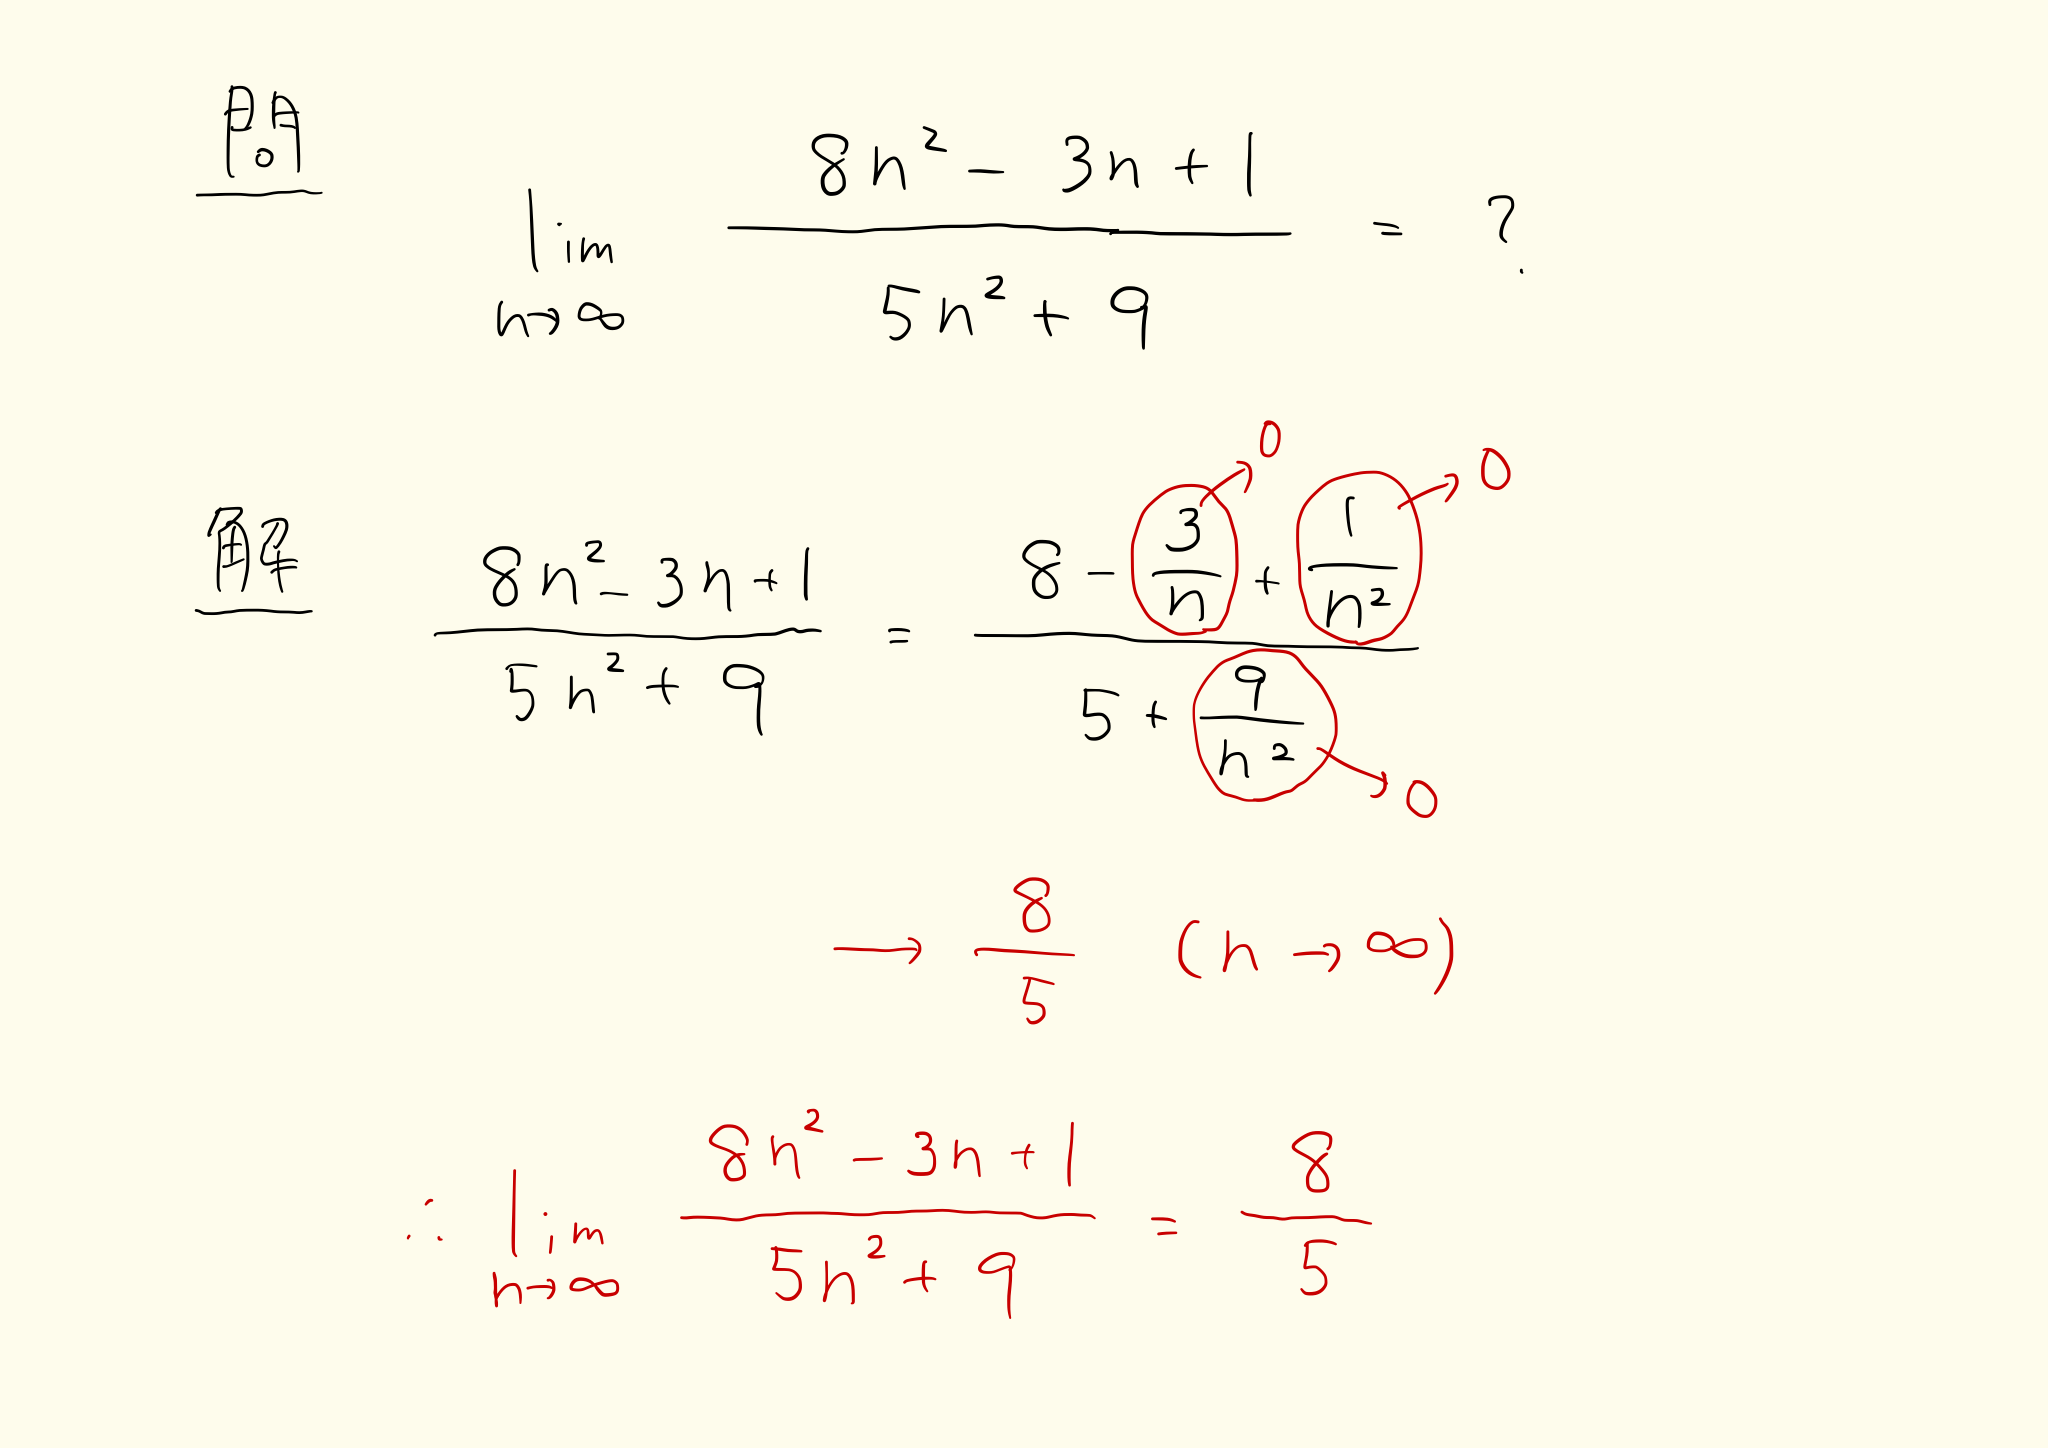 問
lim_{n→∞} (8n² - 3n + 1)/(5n² + 9) = ?
解
(8n² - 3n + 1)/(5n² + 9) = (8 - 3/n + 1/n²)/(5 + 9/n²)
→ 0
→ 0
→ 0
→ 8/5 (n → ∞)
∴ lim_{n→∞} (8n² - 3n + 1)/(5n² + 9) = 8/5